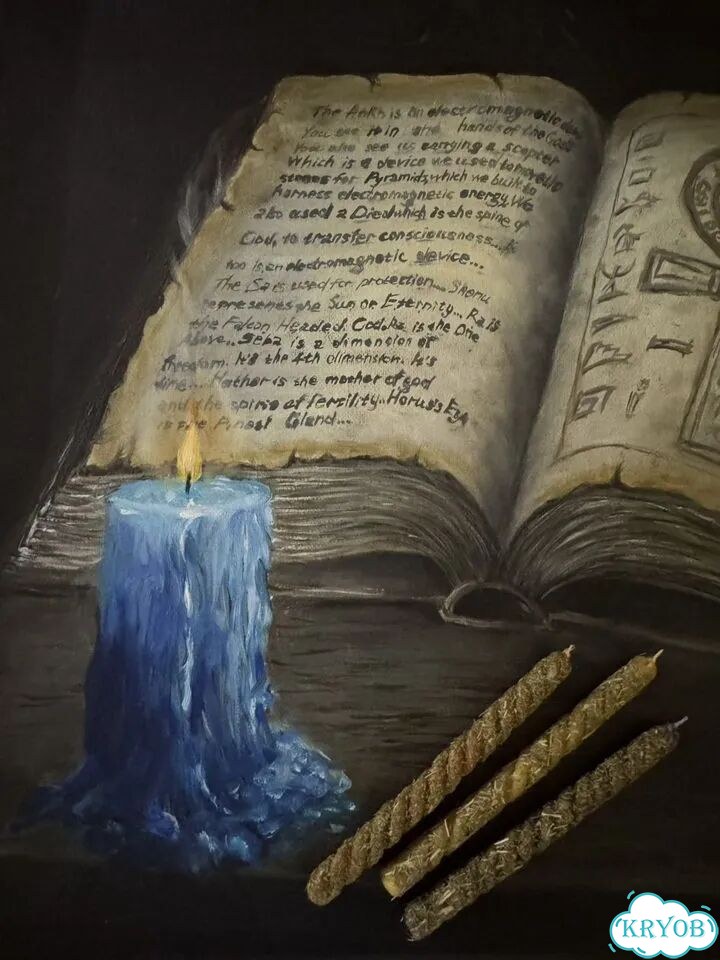 The Ankh is an electromagnetic
You see it in the hands of the Gods
You also see us carrying a scepter
Which is a device we used to move
stones for Pyramids, which we built to
harness electromagnetic energy. We
also used a Djed which is the spine of
God, to transfer consciousness... It
too is an electromagnetic device...
The Sa is used for protection... Shenu
represents the Sun or Eternity... Ra is
the Falcon Headed God. Ra is the One
Above.. Seba is a dimension of
freedom. It's the 4th dimension. It's
time... Hathor is the mother of god
and the spirit of fertility.. Horus's Eye
is the Pineal Gland...
KRYOB